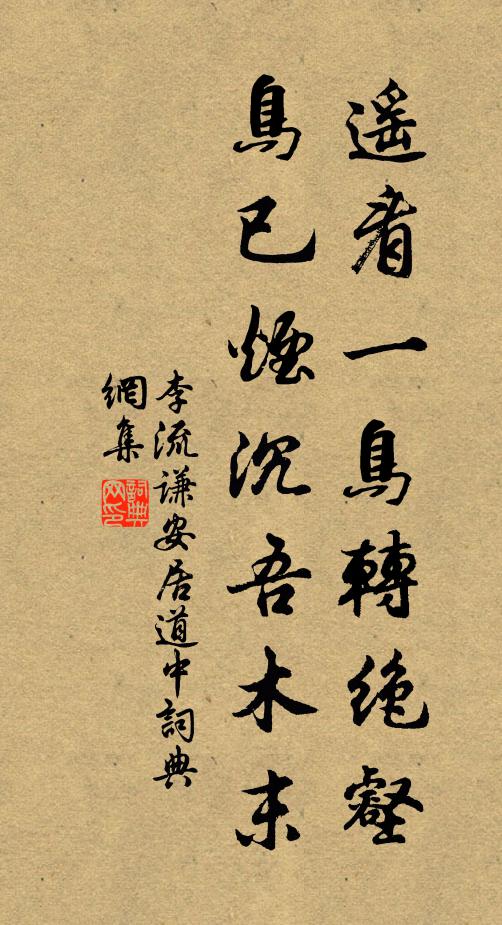 遥看一鳥轉絶壑
鳥已煙沉吾木末
李流謙安居道中詞典
網集
詞典
网印